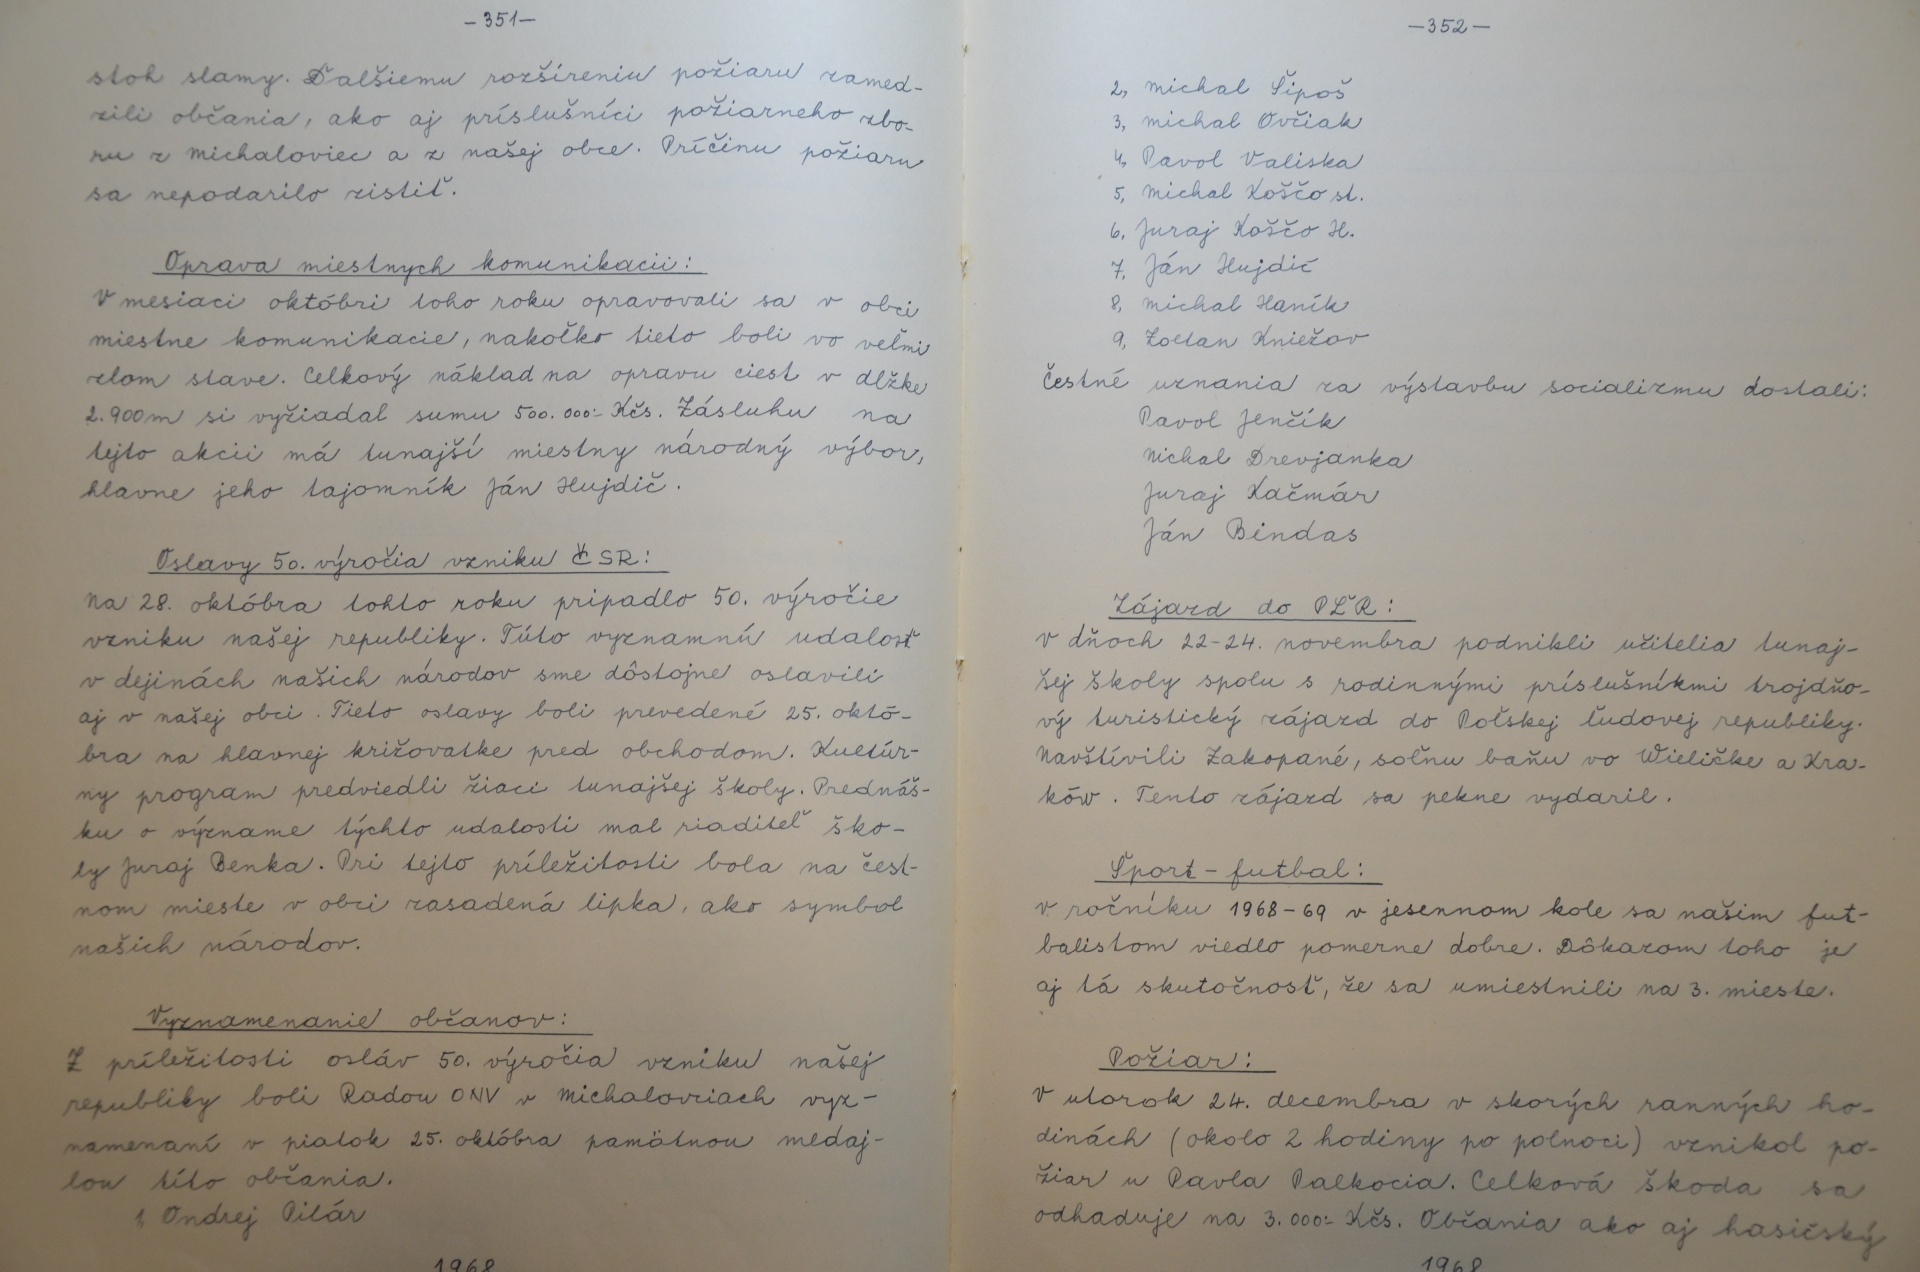 -351-
stoh slamy. Ďalšiemu rozšíreniu požiaru zamed-
zili občania, ako aj príslušníci požiarneho zbo-
ru z Michaloviec a z našej obce. Príčinu požiaru
sa nepodarilo zistiť.
Oprava miestnych komunikacii:
V mesiaci októbri toho roku opravovali sa v obci
miestne komunikacie, nakoľko tieto boli vo veľmi
zlom stave. Celkový náklad na opravu ciest v dlžke
2.900m si vyžiadal sumu 500.000.- Kčs. Zásluhu na
tejto akcii má tunajší miestny národný výbor,
hlavne jeho tajomník Ján Hujdič.
Oslavy 50. výročia vzniku ČSR:
Na 28. októbra tohto roku pripadlo 50. výročie
vzniku našej republiky. Túto vyznamnú udalosť
v dejinách našich národov sme dôstojne oslavili
aj v našej obci. Tieto oslavy boli prevedené 25. októ-
bra na hlavnej križovatke pred obchodom. Kultúr-
ny program predviedli žiaci tunajšej školy. Prednáš-
ku o význame týchto udalosti mal riaditeľ ško-
ly Juraj Benka. Pri tejto príležitosti bola na čest-
nom mieste v obci zasadená lipka, ako symbol
našich národov.
Vyznamenanie občanov:
Z príležitosti osláv 50. výročia vzniku našej
republiky boli Radou ONV v Michalovciach vyz-
namenaní v piatok 25. októbra pamätnou medaj-
lou títo občania.
1, Ondrej Pilár
1968
-352-
2, Michal Šipoš
3, Michal Ovčiak
4, Pavol Valiska
5, Michal Koščo st.
6, Juraj Koščo H.
7, Ján Hujdič
8, Michal Haník
9, Zoltan Kniežov
Čestné uznania za výstavbu socializmu dostali:
Pavol Jenčík
Michal Drevjanka
Juraj Kačmár
Ján Bindas
Zájazd do PĽR:
V dňoch 22-24. novembra podnikli učitelia tunaj-
šej školy spolu s rodinnými príslušníkmi trojdňo-
vý turistický zájazd do Poľskej ľudovej republiky.
Navštívili Zakopané, soľnu baňu vo Wieličke a Kra-
ków. Tento zájazd sa pekne vydaril.
Šport - futbal:
V ročníku 1968-69 v jesennom kole sa našim fut-
balistom viedlo pomerne dobre. Dôkazom toho je
aj tá skutočnosť, že sa umiestnili na 3. mieste.
Požiar:
V utorok 24. decembra v skorých ranných ho-
dinách (okolo 2 hodiny po polnoci) vznikol po-
žiar u Pavla Palkocia. Celková škoda sa
odhaduje na 3.000.- Kčs. Občania ako aj hasičský
1968